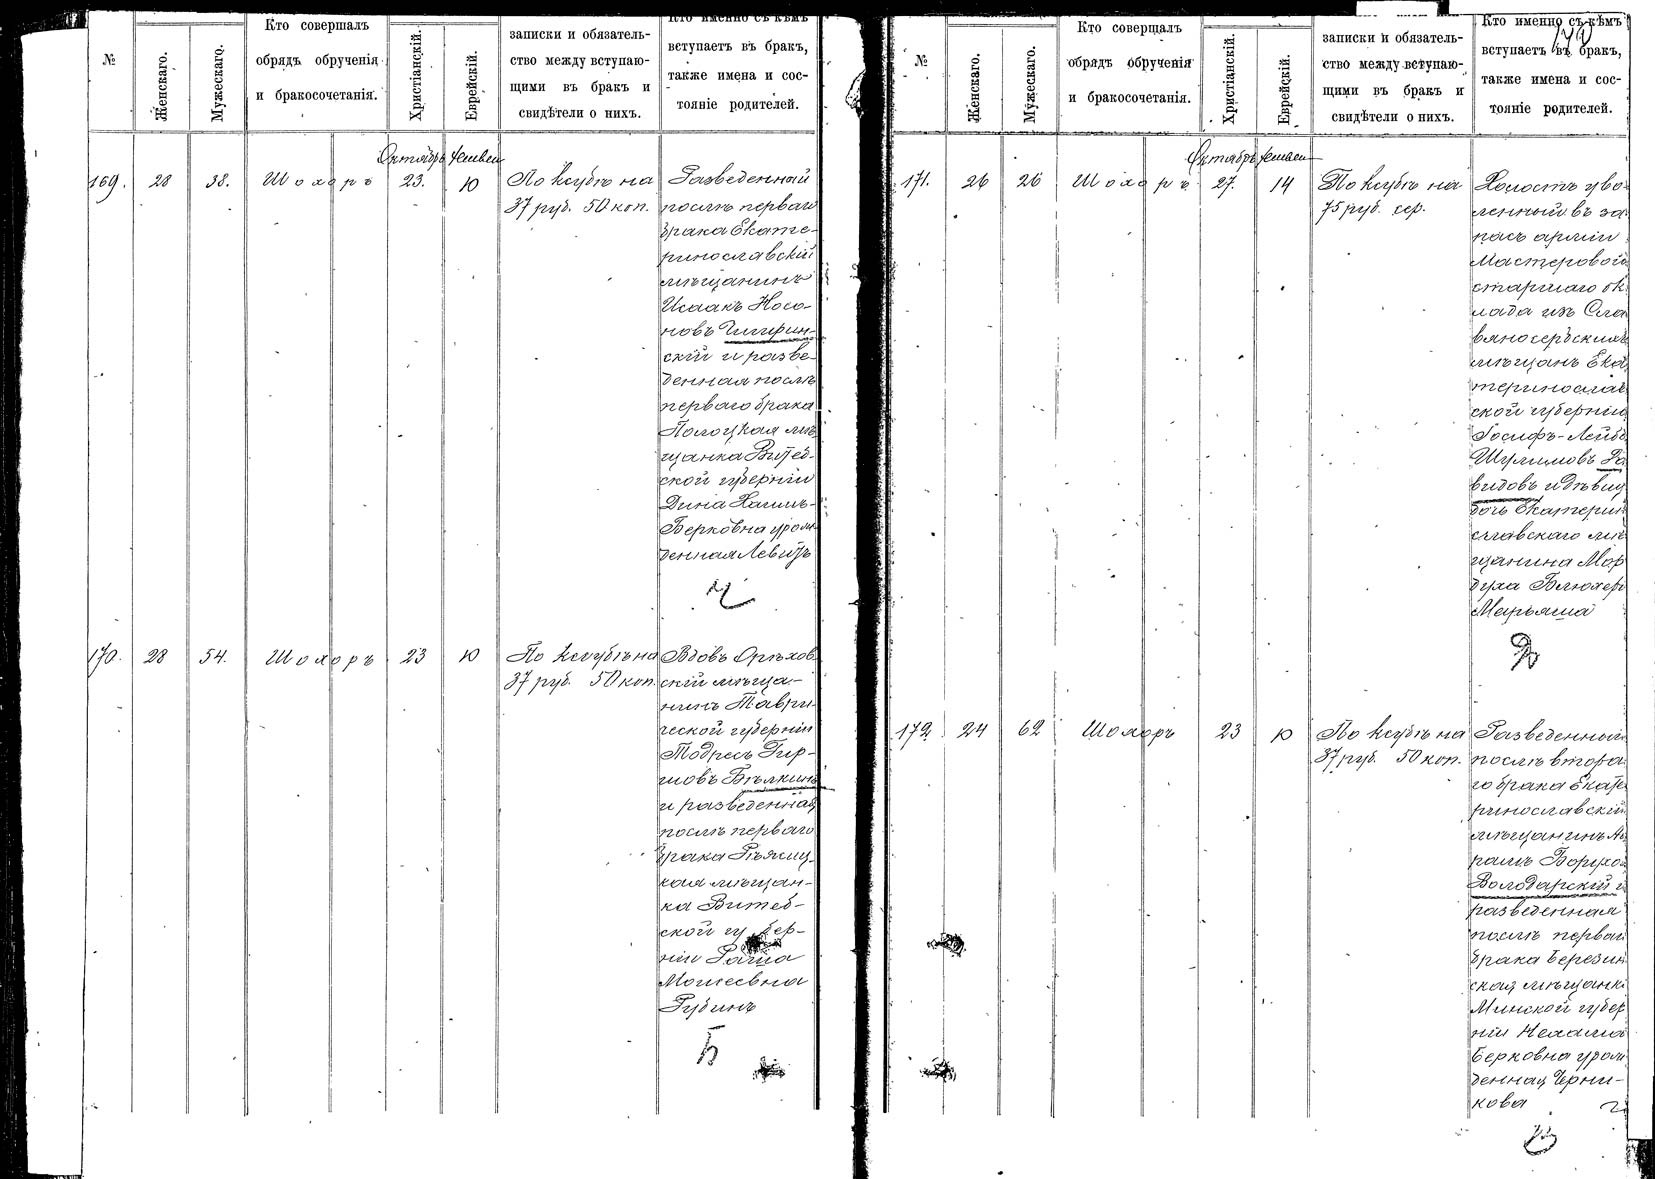 №
Женскаго.
Мужескаго.
Кто совершалъ
обрядъ обрученія
и бракосочетанія.
Христіанскій.
Еврейскій.
записки и обязатель-
ство между вступаю-
щими въ бракъ и
свидѣтели о нихъ.
Кто именно съ кѣмъ
вступаетъ въ бракъ,
также имена и сос-
тояніе родителей.
Октябрь
169. 28 38. Шохоръ 23. 10
По ксубѣ на
37 руб. 50 коп.
Разведенный
послѣ перваго
брака Екате-
ринославскій
мѣщанинъ
Исаакъ Носо-
новъ
скій и разве-
денная послѣ
перваго брака
Полоцкая мѣ-
щанка Витеб-
ской губерніи
Дина Хаимъ-
Берковна урож-
денная Левитъ
Ч
170. 28 54. Шохоръ 23 10
По ксубѣ на
37 руб. 50 коп.
Вдовъ Орѣхов-
скій мѣща-
нинъ Таври-
ческой губерніи
Тодресъ Гир-
шовъ Бѣлкинъ
и разведенная
послѣ перваго
брака Рѣжиц-
кая мѣщан-
ка Витеб-
ской губер-
ніи Рагиа
Мошеевна
Рубинъ
Б
№
Женскаго.
Мужескаго.
Кто совершалъ
обрядъ обрученія
и бракосочетанія.
Христіанскій.
Еврейскій.
записки и обязатель-
ство между вступаю-
щими въ бракъ и
свидѣтели о нихъ.
Кто именно съ кѣмъ
вступаетъ въ бракъ,
также имена и сос-
тояніе родителей.
Октябрь
171. 26 26 Шохоръ 27. 14
По ксубѣ на
75 руб. сер.
Холостъ уво-
ленный въ за-
пасъ арміи
Мастеровой
старшаго ок-
лада изъ Сла-
вяносербскихъ
мѣщанъ Ека-
теринослав-
ской губерніи
Іосифъ-Лейбъ
Шулимовъ Да-
видовъ и дѣвица
дочь Екатерино-
славскаго мѣ-
щанина Мор-
духа Блюхеръ
Марьяша
Д
172 24 62 Шохоръ 23 10
По ксубѣ на
37 руб. 50 коп.
Разведенный
послѣ втора-
го брака Екате-
ринославскій
мѣщанинъ Аб-
рамъ Борухов
Володарскій и
разведенная
послѣ перваго
брака Березин-
ская мѣщанка
Минской губер-
ніи Нехама
Берковна урож-
денная Черни-
кова
В